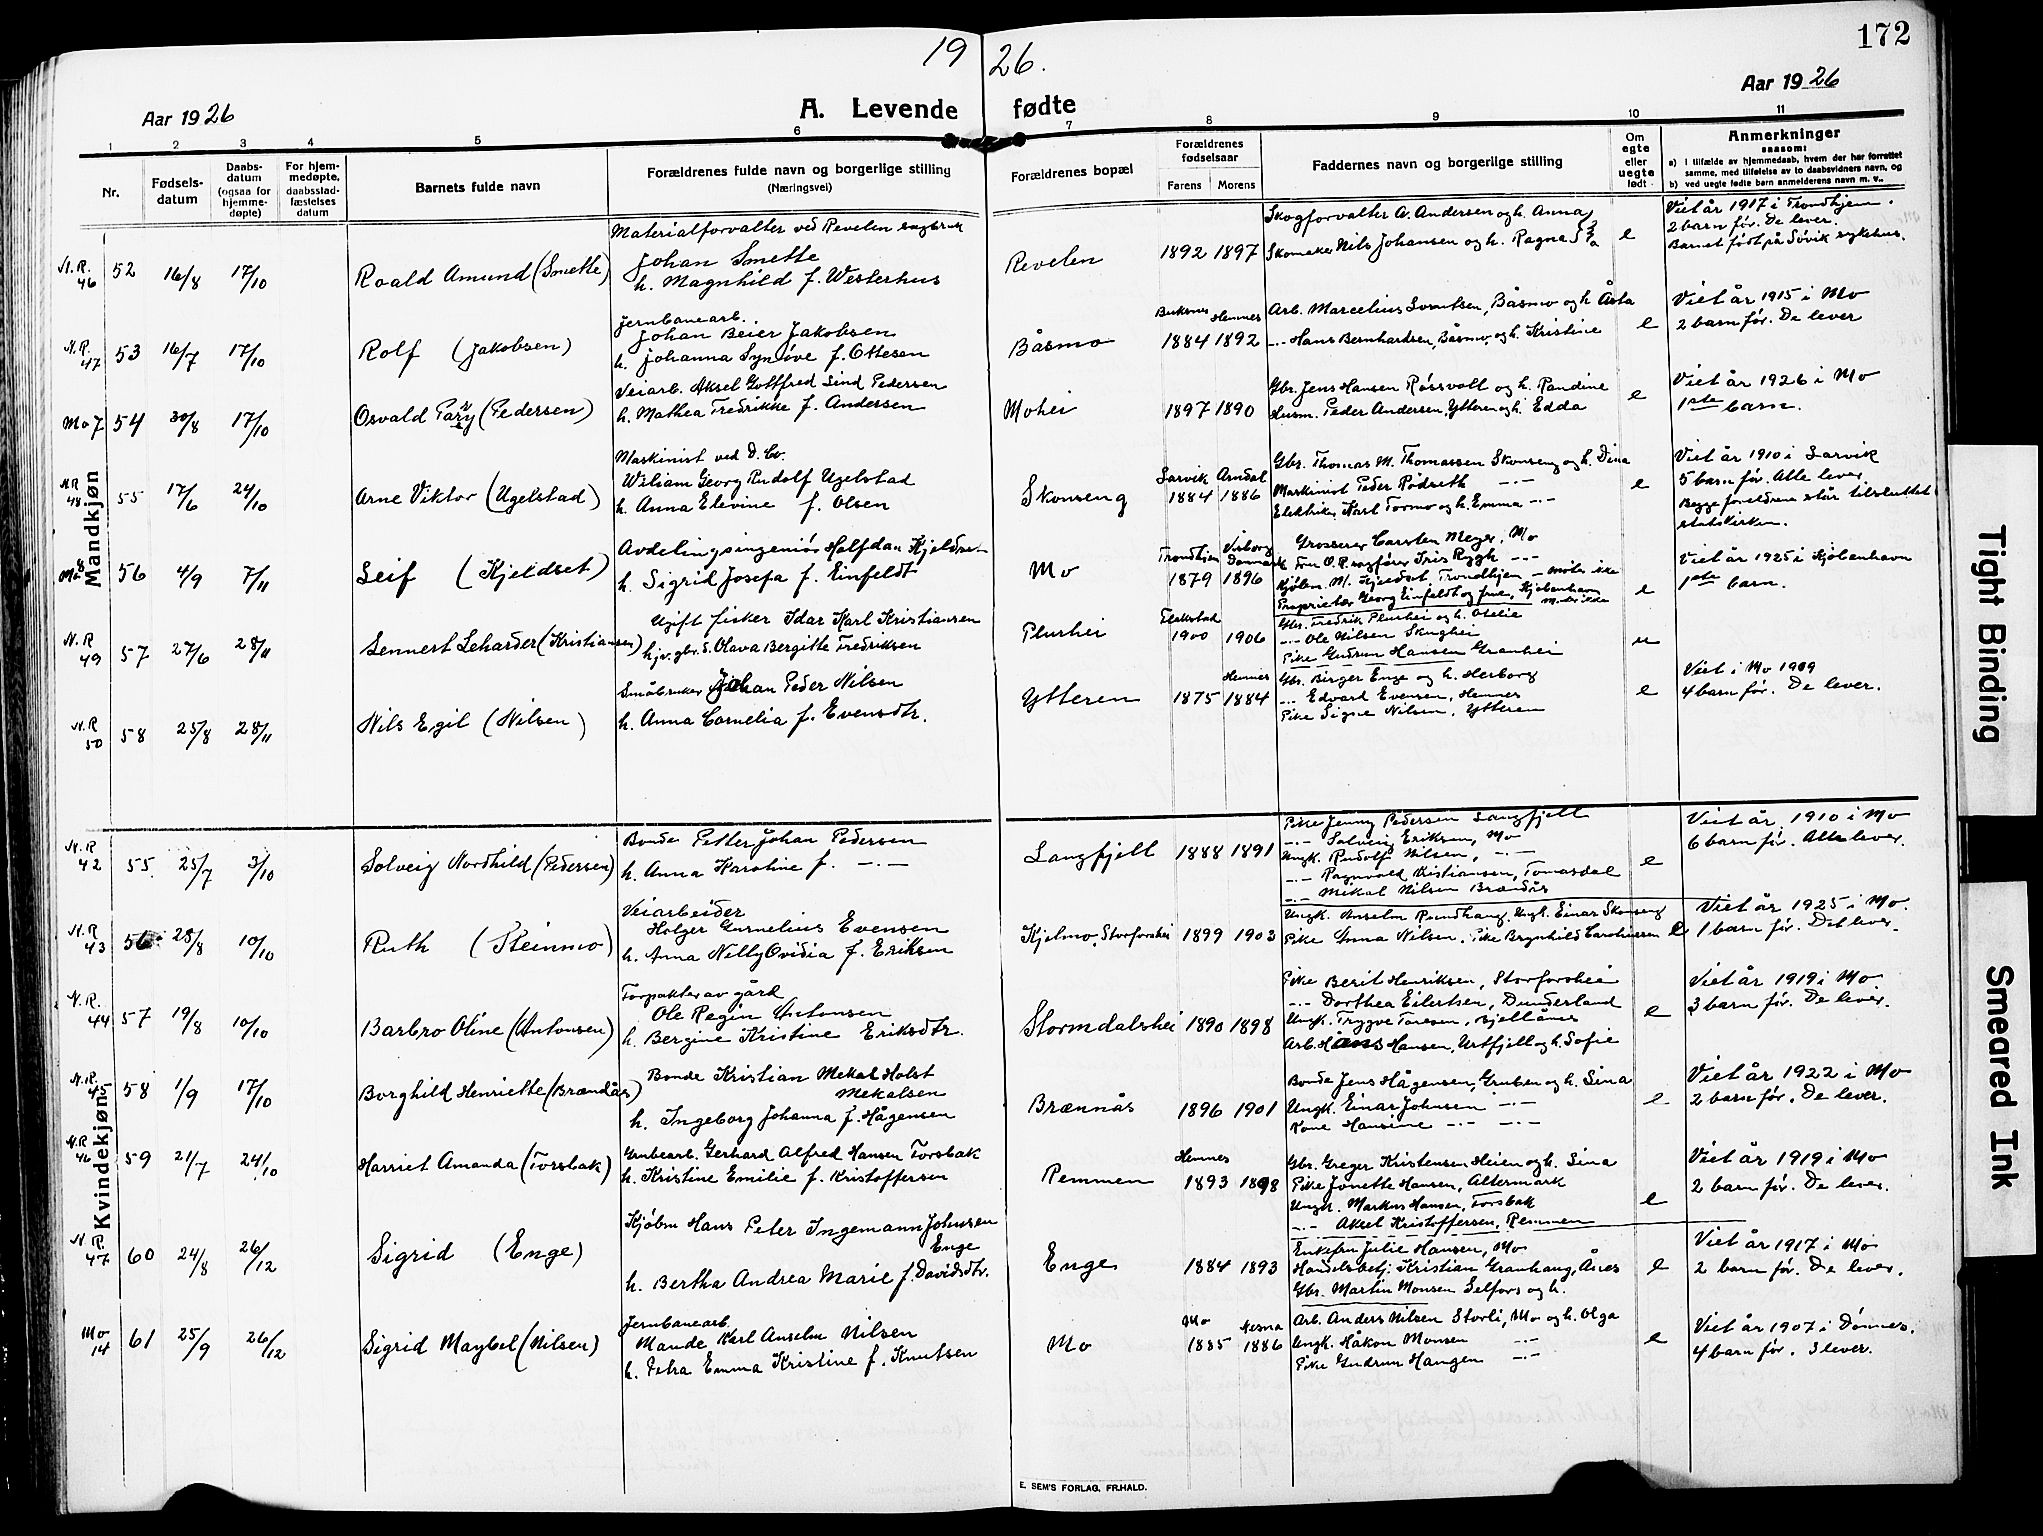 172
19 26.
Aar 1926
A. Levende fødte
Aar 1926
1 2 3 4 5 6 7 8 9 10 11
Nr.
Fødsels-
datum
Daabs-
datum
(ogsaa for
hjemme-
døpte)
For hjem-
medøpte,
daabsstad-
fæstelses
datum
Barnets fulde navn
Forældrenes fulde navn og borgerlige stilling
(Næringsvei)
Forældrenes bopæl
Forældrenes
fødselsaar
Farens Morens
Faddernes navn og borgerlige stilling
Om
egte
eller
uegte
født
Anmerkninger
saasom:
a) i tilfælde av hjemmedaab, hvem der har forrettet
samme, med tilføielse av to daabsvidners navn, og
b) ved uegte fødte barn anmelderens navn m. v..
Mandkjøn
N.R. 46 52 16/8 17/10 Roald Amund (Smette)
Materialforvalter ved Revelen sagbruk
Johan Smette
h. Magnhild f. Westerhus
Revelen 1892 1897
Skogforvalter A. Andersen og h. Anna
Skomaker Nils Johansen og h. Ragna
e
Viet år 1917 i Trondhjem.
2 barn før. De lever.
Barnet født på Søvik sykehus.
N.R. 47 53 16/7 17/10 Rolf (Jakobsen)
Jernbanearb.
Johan Beier Jakobsen
h. Johanna Synøve f. Ottesen
Båsmo Buksnes 1884 Hemnes 1892
Arb. Marcelius Svartsen, Båsmo og h. Åsta
-"- Hans Bernhardsen, Båsmo, og h. Kristine
e
Viet år 1915 i Mo
2 barn før. De lever
Mo 7 54 30/8 17/10 Osvald Parry (Pedersen)
Veiarb. Aksel Gottfred Lind Pedersen
h. Mathea Fredrikke f. Andersen
Mohei 1897 1890
Gbr. Jens Hansen Røssvoll og h. Randine
Husm. Peder Andersen, Ytteren og h. Edda
e
Viet år 1926 i Mo
1ste barn.
N.R. 48 55 17/6 24/10 Arne Viktor (Ugelstad)
Maskinist ved D. Co.
Wiliam Georg Rudolf Ugelstad
h. Anna Elevine f. Olsen
Skonseng Larvik 1884 Arndal 1886
Gbr. Thomas M. Thomassen Skonseng og h. Dina
Maskinist Peder Rødseth -"-
Elektriker Karl Tormo og h. Emma -"-
e
Viet år 1910 i Larvik
5 barn før. Alle lever
Begge foreldrene står tilsluttet
statskirken.
Mo 8 56 4/9 7/11 Leif (Kjeldset)
Avdelingsingeniør Halfdan Kjeldset
h. Sigrid Josefa f. Einfeldt
Mo Trondhjem 1879 Viborg Danmark 1896
Grosserer Carsten Meyer, Mo
Fru O.R. sagfører Iris Rygh -"-
Kjøbm. M. Kjeldset, Trondhjem - møter ikke
Proprietær Georg Einfeldt og frue, Kjøbenhavn
e
Viet år 1925 i Kjøbenhavn
1ste barn.
N.R 49 57 27/6 28/11 Lennert Leharder (Kristiansen)
Ugift fisker Idar Karl Kristiansen
hjv. gbr. d. Olava Bergitte Fredriksen
Plurhei 1900 1906
Gbr. Fredrik Plurhei og h. Otelie
-"- Ole Nilsen Skughei
Pike Gudrun Hansen Granhei
u
N.R 50 58 25/8 28/11 Nils Egil (Nilsen)
Småbruker Johan Peder Nilsen
h. Anna Cornelia f. Evensdtr.
Ytteren 1875 Hemnes 1884
Gbr. Birger Enge og h. Herborg
-"- Edvard Evensen, Hemnes
Pike Signe Nilsen, Ytteren
e
Viet i Mo 1909
4 barn før. De lever.
Kvindekjøn
N.R 42 55. 25/7 3/10 Solveig Nordhild (Pedersen)
Bonde Petter Johan Pedersen
h. Anna Karoline f. -"-
Langfjell 1888 1891
Pike Jenny Pedersen Langfjell
-"- Solveig Eriksen, Mo
Ungk. Rudolf Nilsen, -"-
-"- Ragnvald Kristiansen, Tomasdal
-"- Mikal Nilsen Brændås
e
Viet år 1910 i Mo
6 barn før. Alle lever.
N.R 43 56 28/8 10/10 Ruth (Steinmo)
Veiarbeider
Holger Kornelius Evensen
h. Anna Nelly Ovidia f. Eriksen
Kjelmo, Storforshei 1899 1903
Ungk. Anselm Rundhaug, Ungk. Einar Skonseng
Pike Anna Nilsen, Pike Brynhild Caroliussen
e
Viet år 1925 i Mo.
1 barn før. Det lever.
N.R. 44 57 19/8 10/10 Barbro Oline (Antonsen)
Forpakter av gård
Ole Regin Antonsen
h. Bergine Kristine Eriksdtr.
Stormdalshei 1890 1898
Pike Berit Henriksen, Storforshei
-"- Dorthea Eilertsen, Dunderland
Ungk. Trygve Toresen, Bjellånes
Arb. Hans Hansen, Urtfjell og h. Sofie
e
Viet år 1919 i Mo.
3 barn før. De lever.
N.R. 45 58 1/9 17/10 Borghild Henriette (Brændås)
Bonde Kristian Mekal Holst
Mekalsen
h. Ingeborg Johanna f. Hågensen
Brennås 1896 1901
Bonde Jens Hågensen, Gruben og h. Lina
Ungk. Einar Johnsen -"-
Kone Hansine -"- -"-
e
Viet år 1922 i Mo
2 barn før. De lever.
N.R 46 59 21/7 24/10 Harriet Amanda (Forsbak)
Grubearb. Gerhard Alfred Hansen Forsbak
h. Kristine Emilie f. Kristoffersen
Remmen Hemnes 1893 1898
Gbr. Greger Kristensen Heien og h. Lina
Pike Jonette Hansen, Altermark
Ungk. Markus Hansen, Forsbak
-"- Aksel Kristoffersen, Remmen
e
Viet år 1919 i Mo
2 barn før. De lever.
N.R 47 60 24/8 26/12 Sigrid (Enge)
Kjøbm Hans Peter Ingemann Johnsen
Enge
h. Bertha Andrea Marie f. Davidsdtr.
Enge 1884 1893
Enkefru Julie Hansen, Mo
Handelsbetj. Kristian Granhaug, Ånes
Gbr. Martin Monsen Selfors og h.
e
Viet år 1917 i Mo
2 barn før. De lever.
Mo 14 61 25/9 26/12 Sigrid Maybel (Nilsen)
Jernbanearb.
Mande Karl Anselm Nilsen
h. Petra Emma Kristine f. Knutsen
Mo Mo 1885 Nesna 1886
Arb. Anders Nilsen Storli, Mo og h. Olga
Ungk. Håkon Monsen -"-
Pike Gudrun Haugen -"-
e
Viet år 1907 i Dønnes.
4 barn før. 3 lever.
E. SEM'S FORLAG, FR.HALD.
Tight Binding
Smeared Ink